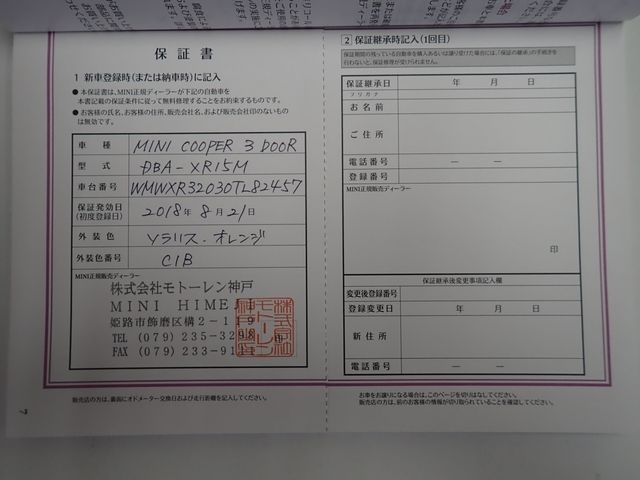 保証書
1 新車登録時(または納車時)に記入
●本保証書は、MINI正規ディーラーが下記の自動車を
本書記載の保証条件に従って無料修理することをお約束するものです。
●お客様の氏名、お客様の住所、販売会社名、および販売会社印のないもの
は無効です。
車種 MINI COOPER 3 DOOR
型式 DBA-XR15M
車台番号 WMWXR32030TL82457
保証発効日
(初度登録日) 2018年8月21日
外装色 ソラリス・オレンジ
外装色番号 C1B
MINI正規販売ディーラー
株式会社モトーレン神戸
MINI HIMEJI
姫路市飾磨区構2-119
TEL (079) 235-3298
FAX (079) 233-91
販売店の方は、裏面にオドメーター交換日および走行距離を記入してください。
2 保証継承時記入(1回目)
保証期間の残っている自動車を購入あるいは譲り受けた場合には、「保証の継承」の手続きを
行わないと、保証修理が受けられません。
保証継承日 年 月 日
フリガナ
お名前
ご住所
電話番号 — —
登録番号
MINI正規販売ディーラー
印
保証継承後変更事項記入欄
変更後登録番号
登録変更日 年 月 日
新住所
電話番号 — —
お車をお譲りになる場合は、このページを切りはなしてください。
販売店の方は、前のお客様の情報が切り取られていることを確認してください。